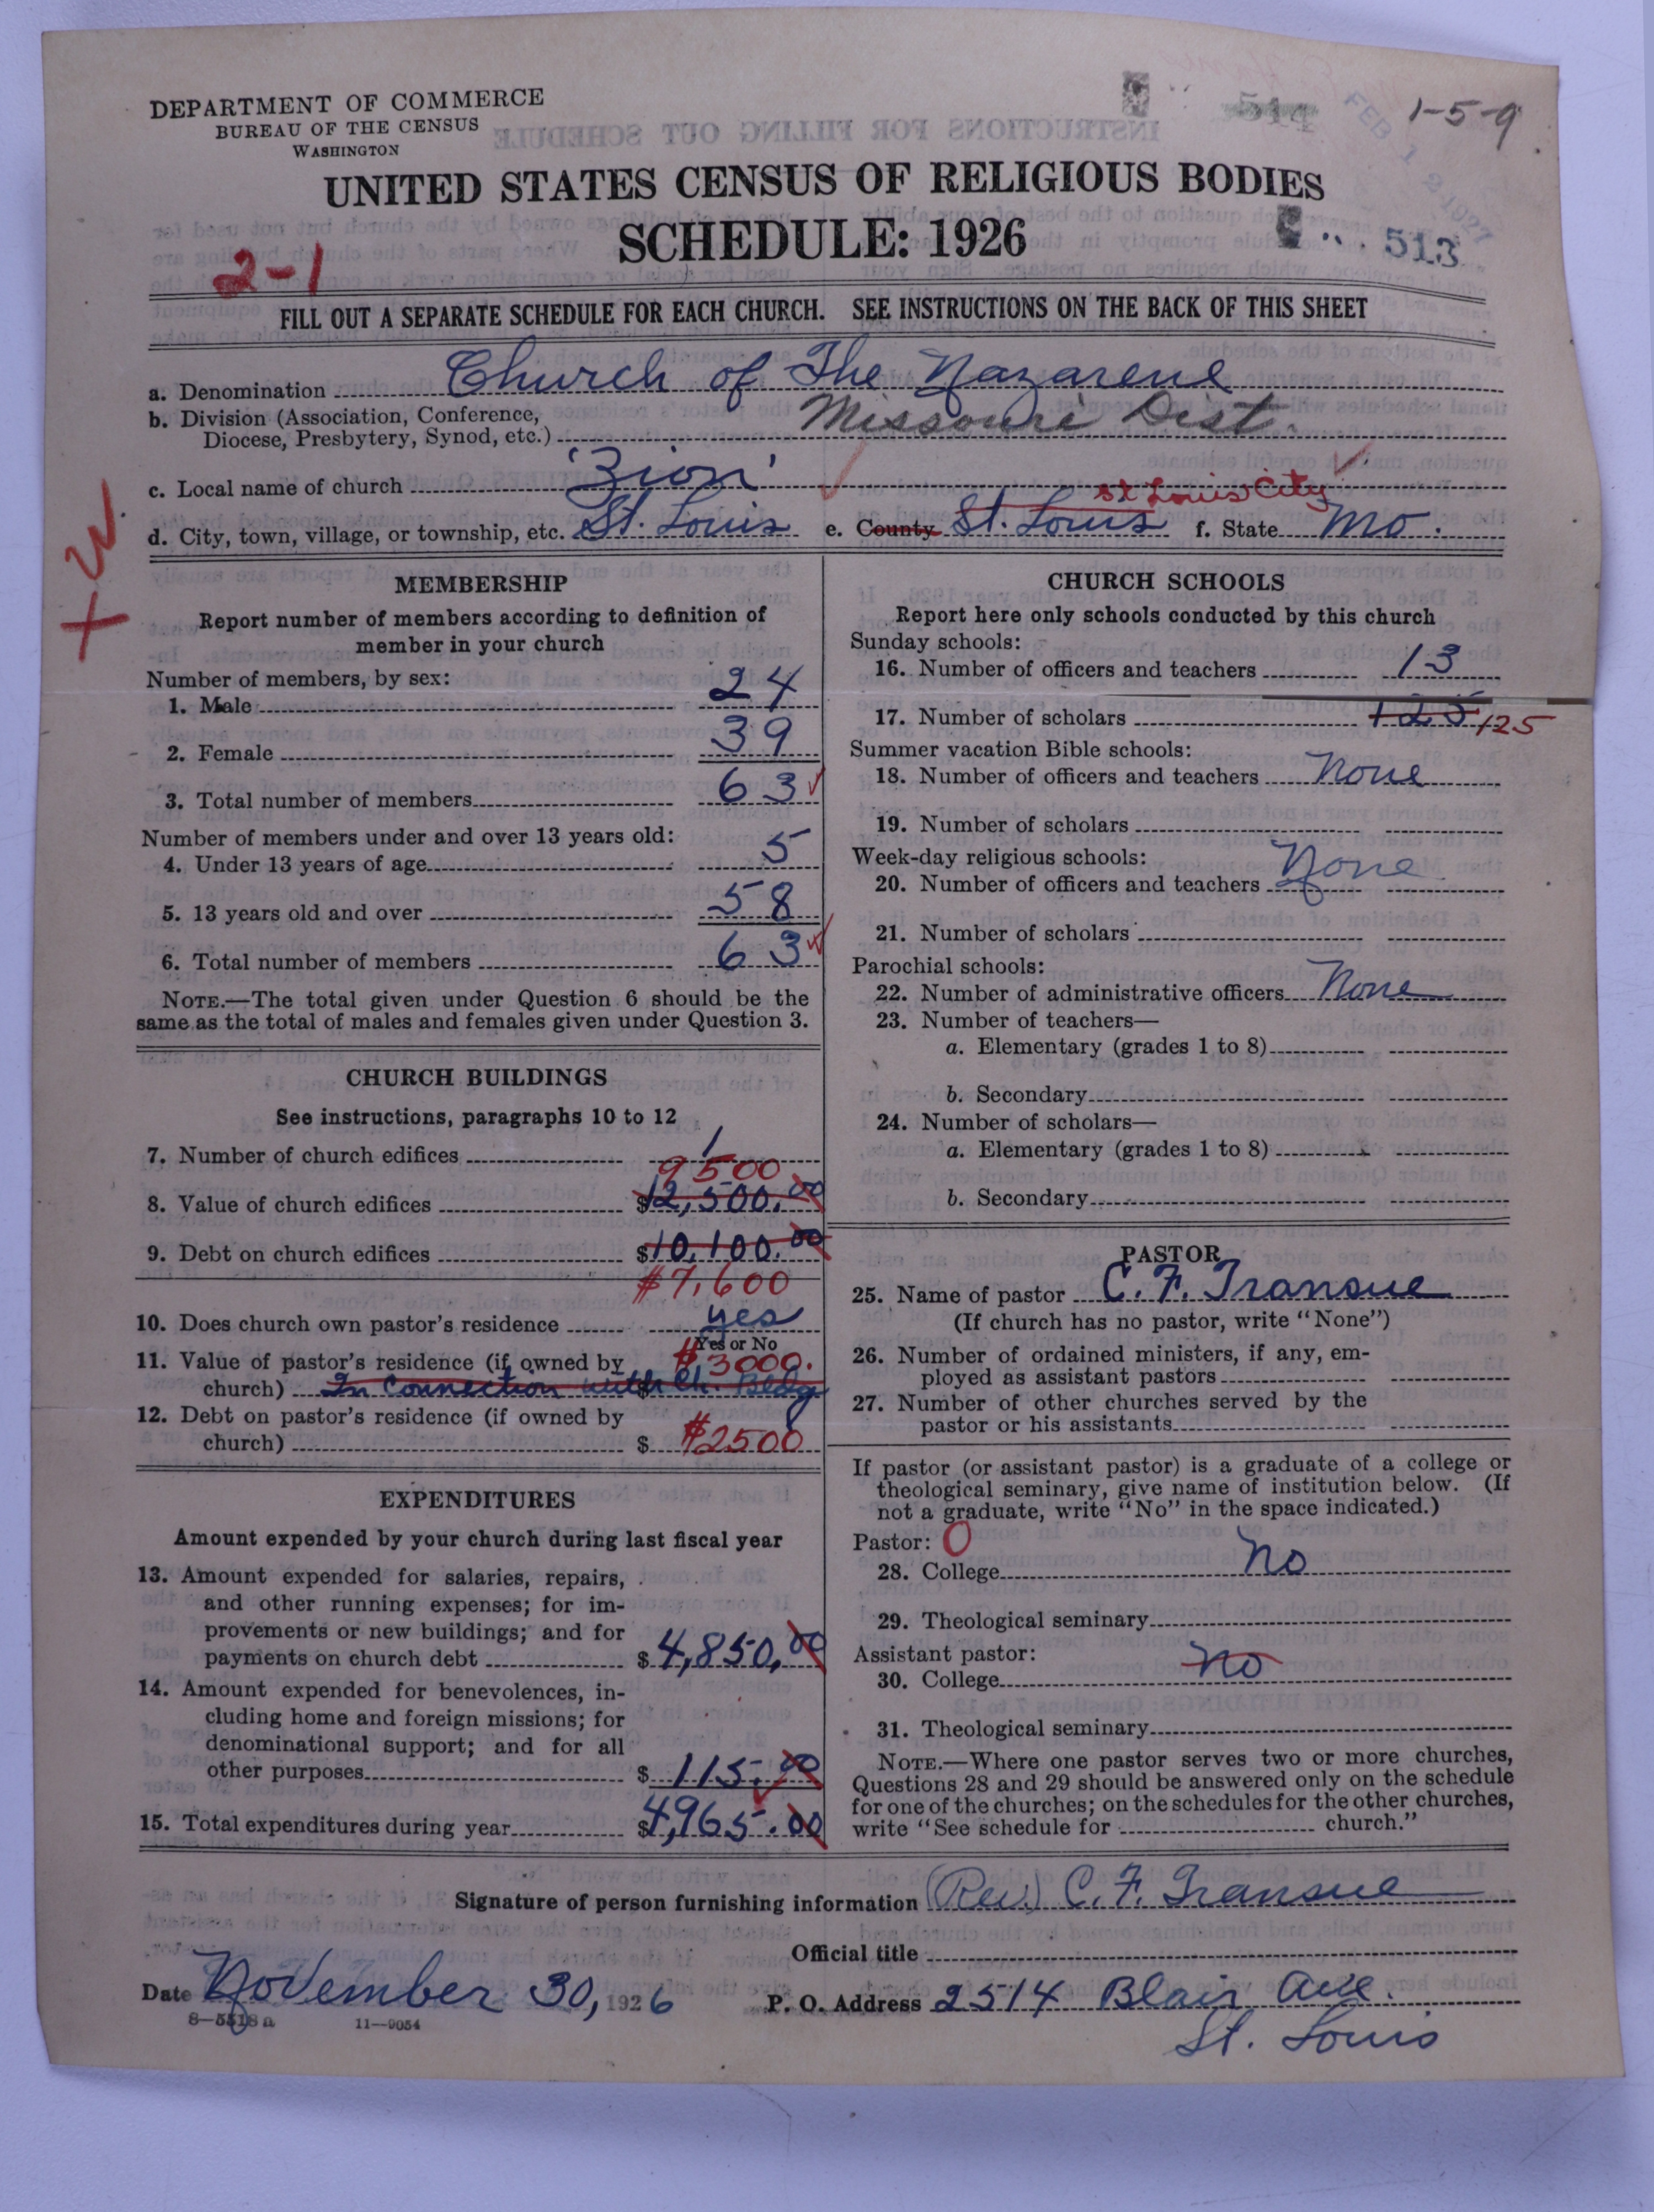 DEPARTMENT OF COMMERCE
BUREAU OF THE CENSUS
WASHINGTON
1-5-9
FEB 1 2 1927
514
UNITED STATES CENSUS OF RELIGIOUS BODIES
SCHEDULE: 1926
513
2-1
FILL OUT A SEPARATE SCHEDULE FOR EACH CHURCH. SEE INSTRUCTIONS ON THE BACK OF THIS SHEET
a. Denomination Church of The Nazarene
b. Division (Association, Conference,
Diocese, Presbytery, Synod, etc.) Missouri Dist.
c. Local name of church 'Zion'
St Louis City
d. City, town, village, or township, etc. St. Louis e. County St. Louis f. State Mo.
+ W.
MEMBERSHIP
Report number of members according to definition of
member in your church
Number of members, by sex:
1. Male 24
2. Female 39
3. Total number of members 63
Number of members under and over 13 years old:
4. Under 13 years of age 5
5. 13 years old and over 58
6. Total number of members 63
NOTE.—The total given under Question 6 should be the
same as the total of males and females given under Question 3.
CHURCH BUILDINGS
See instructions, paragraphs 10 to 12
7. Number of church edifices 1
9500
8. Value of church edifices $12,500.00
9. Debt on church edifices $10,100.00
$7,600
10. Does church own pastor's residence yes
Yes or No
11. Value of pastor's residence (if owned by $3000.
church) In Connection with Ch. Bldg $
12. Debt on pastor's residence (if owned by
church) $ $2500
EXPENDITURES
Amount expended by your church during last fiscal year
13. Amount expended for salaries, repairs,
and other running expenses; for im-
provements or new buildings; and for
payments on church debt $4,850.00
14. Amount expended for benevolences, in-
cluding home and foreign missions; for
denominational support; and for all
other purposes $ 115.00
15. Total expenditures during year $4,965.00
CHURCH SCHOOLS
Report here only schools conducted by this church
Sunday schools:
16. Number of officers and teachers 13
17. Number of scholars 125 125
Summer vacation Bible schools:
18. Number of officers and teachers None
19. Number of scholars
Week-day religious schools:
20. Number of officers and teachers None
21. Number of scholars
Parochial schools:
22. Number of administrative officers None
23. Number of teachers—
a. Elementary (grades 1 to 8)
b. Secondary
24. Number of scholars—
a. Elementary (grades 1 to 8)
b. Secondary
PASTOR
25. Name of pastor C. F. Transue
(If church has no pastor, write "None")
26. Number of ordained ministers, if any, em-
ployed as assistant pastors
27. Number of other churches served by the
pastor or his assistants
If pastor (or assistant pastor) is a graduate of a college or
theological seminary, give name of institution below. (If
not a graduate, write "No" in the space indicated.)
Pastor: O
28. College No
29. Theological seminary
Assistant pastor:
30. College No
31. Theological seminary
NOTE.—Where one pastor serves two or more churches,
Questions 28 and 29 should be answered only on the schedule
for one of the churches; on the schedules for the other churches,
write "See schedule for church."
Signature of person furnishing information (Rev.) C. F. Transue
Official title
Date November 30, 1926 P. O. Address 2514 Blair Ave.
St. Louis
8—5518a 11—9054